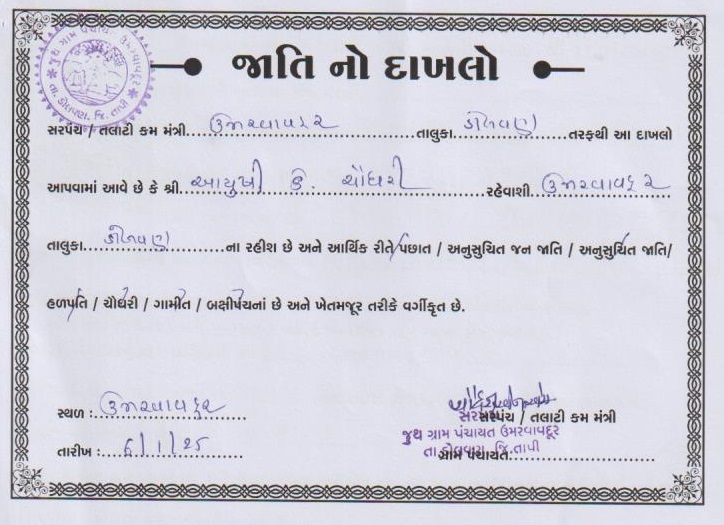 જુથ ગ્રામ પંચાયત ઉમરવાવદૂર
તા. ડોલવણ, જિ. તાપી
જાતિ નો દાખલો
સરપંચ / તલાટી કમ મંત્રી ઉમરવાવદુર તાલુકા ડોલવણ તરફથી આ દાખલો
આપવામાં આવે છે કે શ્રી આયુષી કે. ચૌધરી રહેવાશી ઉમરવાવદુર
તાલુકા ડોલવણ ના રહીશ છે અને આર્થિક રીતે પછાત / અનુસુચિત જન જાતિ / અનુસુચિત જાતિ/
હળપતિ / ચૌધરી / ગામીત / બક્ષીપંચનાં છે અને ખેતમજૂર તરીકે વર્ગીકૃત છે.
સ્થળ : ઉમરવાવદુર
સરપંચ
સરપંચ / તલાટી કમ મંત્રી
જુથ ગ્રામ પંચાયત ઉમરવાવદૂર
તારીખ : 6/1/25
તા.ડોલવણ, જિ.તાપી
ગ્રામ પંચાયત: